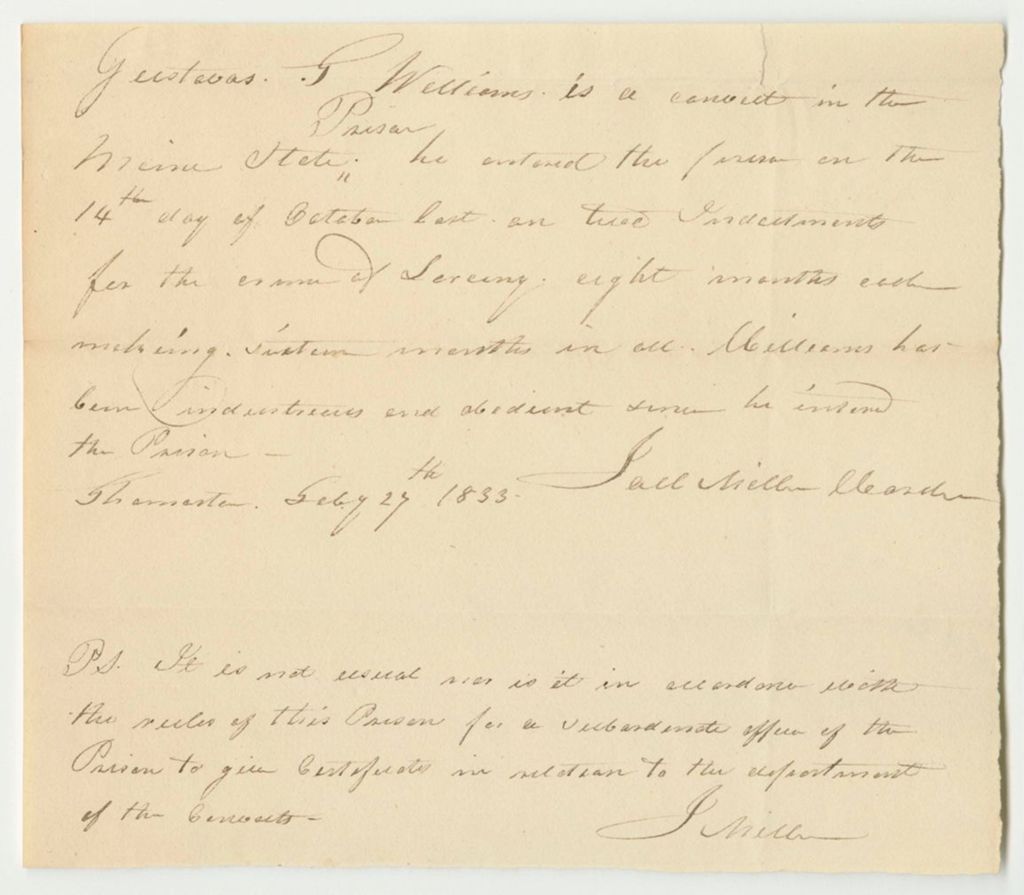 Gustavas. G Williams. is a convict in the
Prison
Maine State,, he entered the prison on the
14th day of October last on two Indictments
for the crime of Larceny. eight months each
making. sixteen months in all. Williams has
been industrious and obedient since he entered
the Prison -
Thomaston. Feby 27th 1833. Joel Miller Warden
P.S. It is not usual nor is it in accordance with
the rules of this Prison for a subordinate officer of the
Prison to give Certificates in relation to the department
of the Convicts -
J Miller